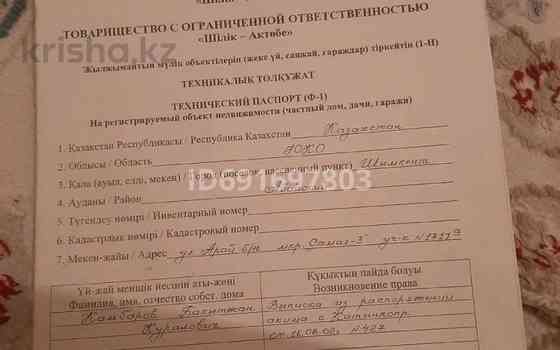 ТОВАРИЩЕСТВО С ОГРАНИЧЕННОЙ ОТВЕТСТВЕННОСТЬЮ
«Шілік – Актөбе»
krisha.kz
Жылжымайтын мүлік объектілерін (жеке үй, саяжай, гараждар) тіркейтін (1-Н)
ТЕХНИКАЛЫҚ ТОЛҚҰЖАТ
ТЕХНИЧЕСКИЙ ПАСПОРТ (Ф-1)
На регистрируемый объект недвижимости (частный дом, дачи, гаражи)
1. Казахстан Республикасы / Республика Казахстан Казахстан
2. Облысы / Область ЮКО
3. Кала (ауыл, елді, мекен) / Город (поселок, населенный пункт) Шымкент
ID691697803
4. Ауданы / Район
5. Түгендеу нөмірі / Инвентарный номер
6. Кадастрлык нөмірі / Кадастровый номер
7. Мекен-жайы / Адрес ул Арай мкр. Самал-3 уч-к №1757а
Үй-жай меншік иесінің аты-жөні
Фамилия, имя, отчество собст. дома
Құқықтың пайда болуы
Возникновение права
Камбаров Бакытжан
Куралович
Выписка из распоряжения
акима с
№427